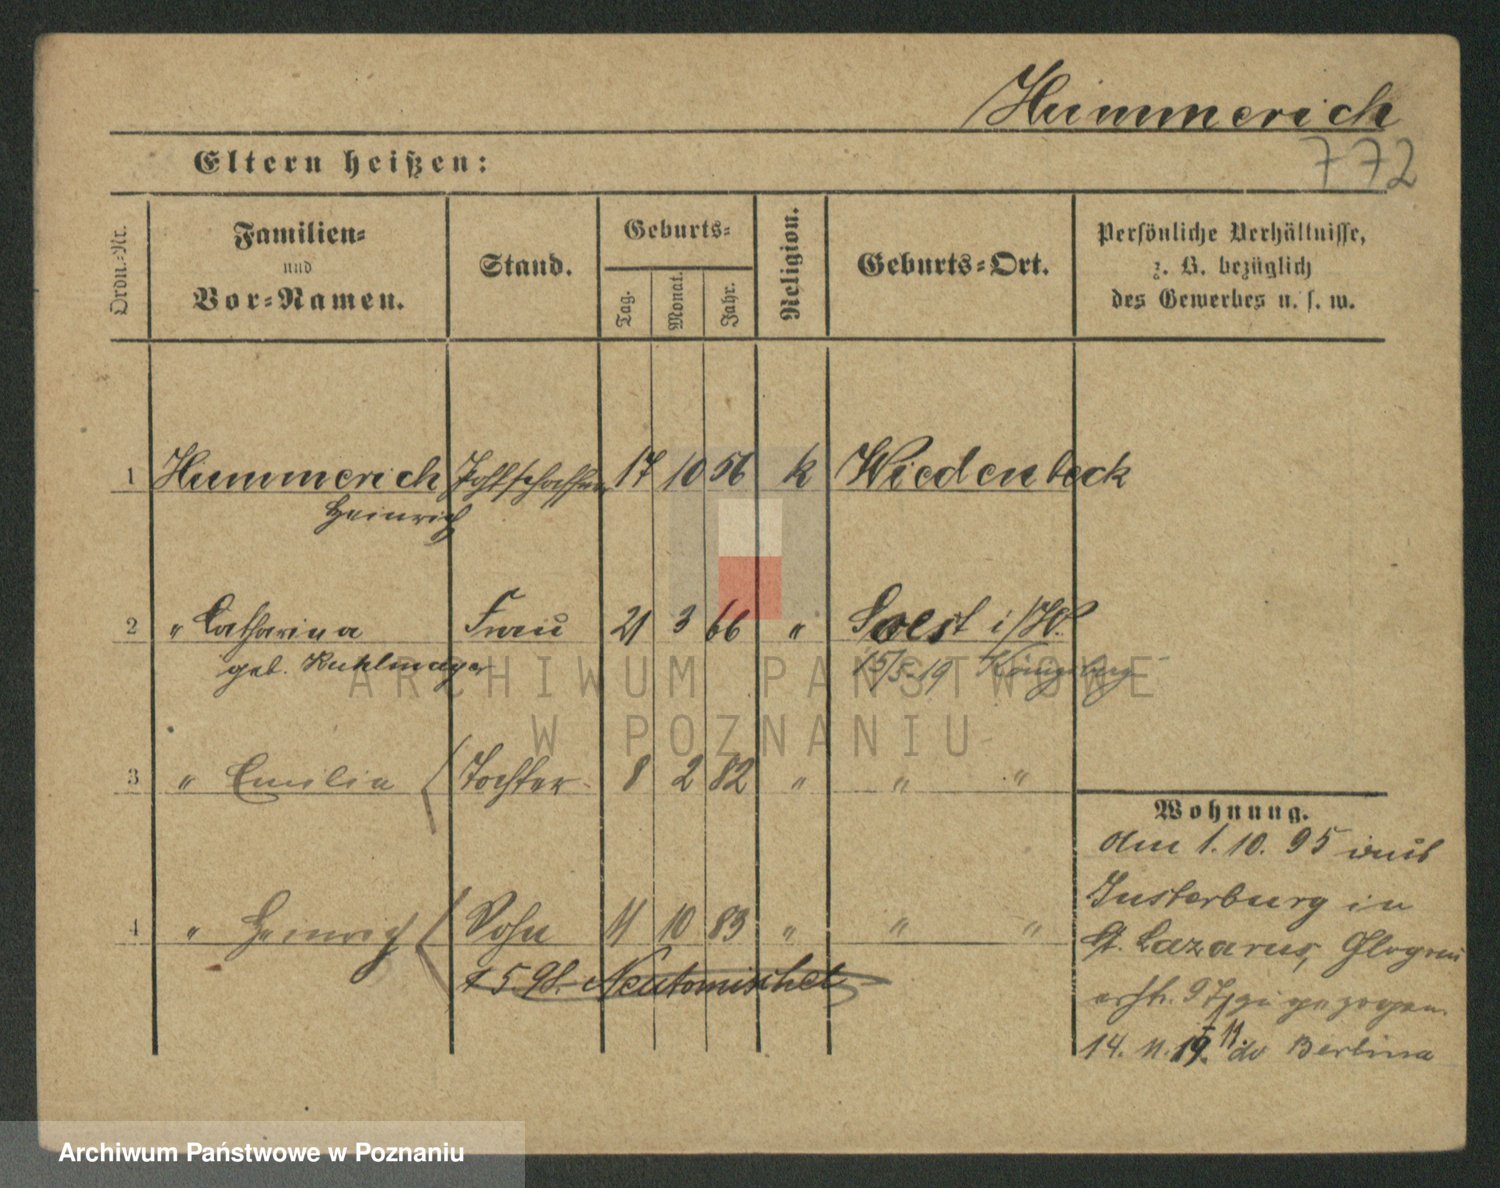 Himmerich
772
Eltern heißen:
Ordn.-Nr.
Familien-
und
Vor-Namen.
Stand.
Geburts-
Tag.
Monat.
Jahr.
Religion.
Geburts-Ort.
Persönliche Verhältnisse,
z. B. bezüglich
des Gewerbes u. s. w.
1 Himmerich 17 10 56 k Wiedenbeck
Heinrich
2 " Catharina Frau 21 3 66 " Soest i/W.
geb. Kuhlmayer 15/5-19 Königsberg
3 " Emilia Tochter 8 2 82 " " "
Wohnung.
am 1. 10. 95 aus
Insterburg in
4 " Heinrich Sohn 11 10 83 " " "
St. Lazarus, Glogau
5 98. Neutomischel
erstr. 97 zugezogen.
14. 11. 19. do Berlina
ARCHIWUM PAŃSTWOWE
W POZNANIU
Archiwum Państwowe w Poznaniu